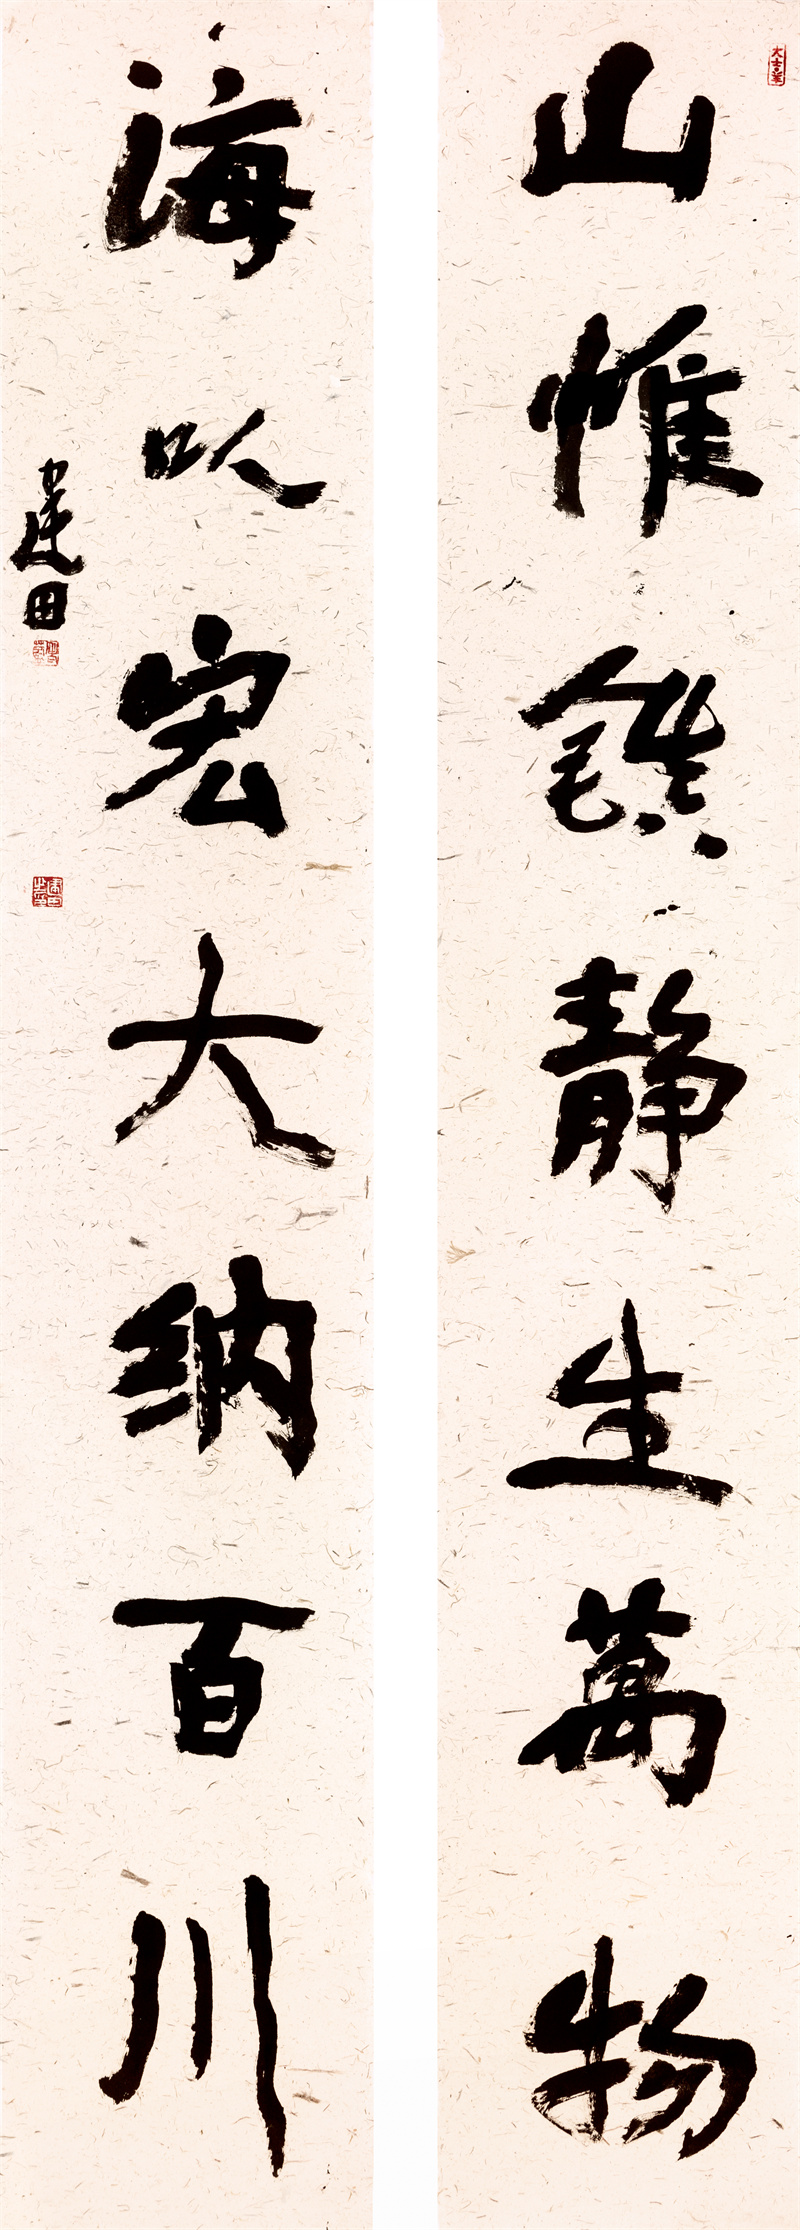 大吉羊
山惟鎮静生萬物
海以宏大纳百川
建田